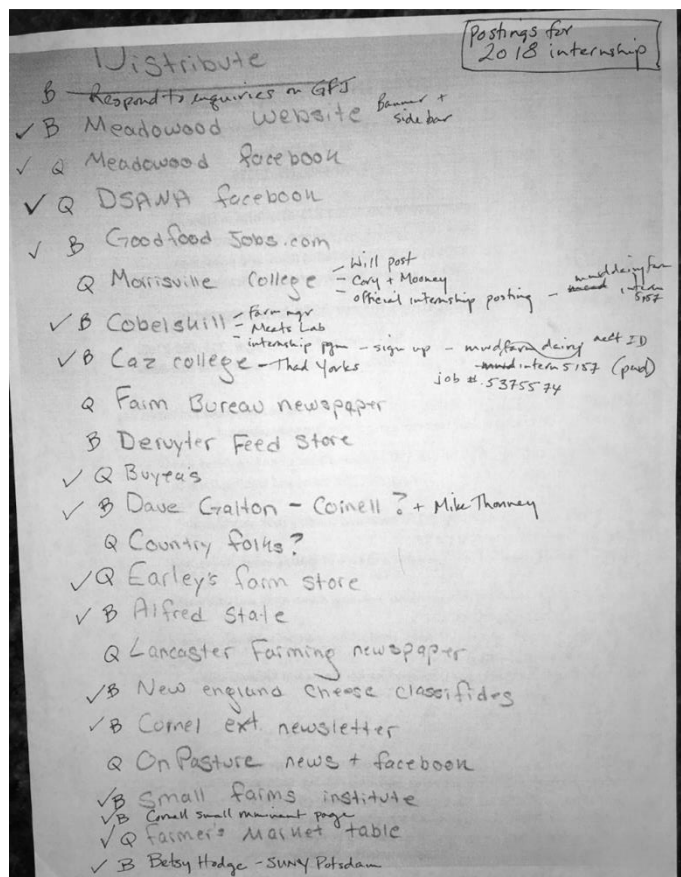 Postings for
2018 internship
Distribute
B Respond to enquiries on GFJ
✓ B Meadowood website Banner +
side bar
✓ Q Meadowood facebook
✓ Q DSANA facebook
✓ B Goodfood Jobs.com
Q Morrisville College – Will post
– Cory + Mooney
– official internship posting – mwddairyfarm
intern
5157
✓ B Cobelskill – Farm mgr
– Meats Lab
– internship pgm – sign up – mwdfarm dairy acct ID
✓ B Caz college – Thad Yorks
mwdintern5157 (pwd)
job #. 5375574
Q Farm Bureau newspaper
B Deruyter Feed Store
✓ Q Buyea's
✓ B Dave Galton – Cornell ? + Mike Thonney
Q Country folks?
✓ Q Earley's farm store
✓ B Alfred State
Q Lancaster Farming newspaper
✓ B New england cheese classifides
✓ B Cornel ext newsletter
Q On Pasture news + facebook
✓ B Small farms institute
✓ B Cornell small ruminant page
✓ Q farmer's market table
✓ B Betsy Hodge – SUNY Potsdam